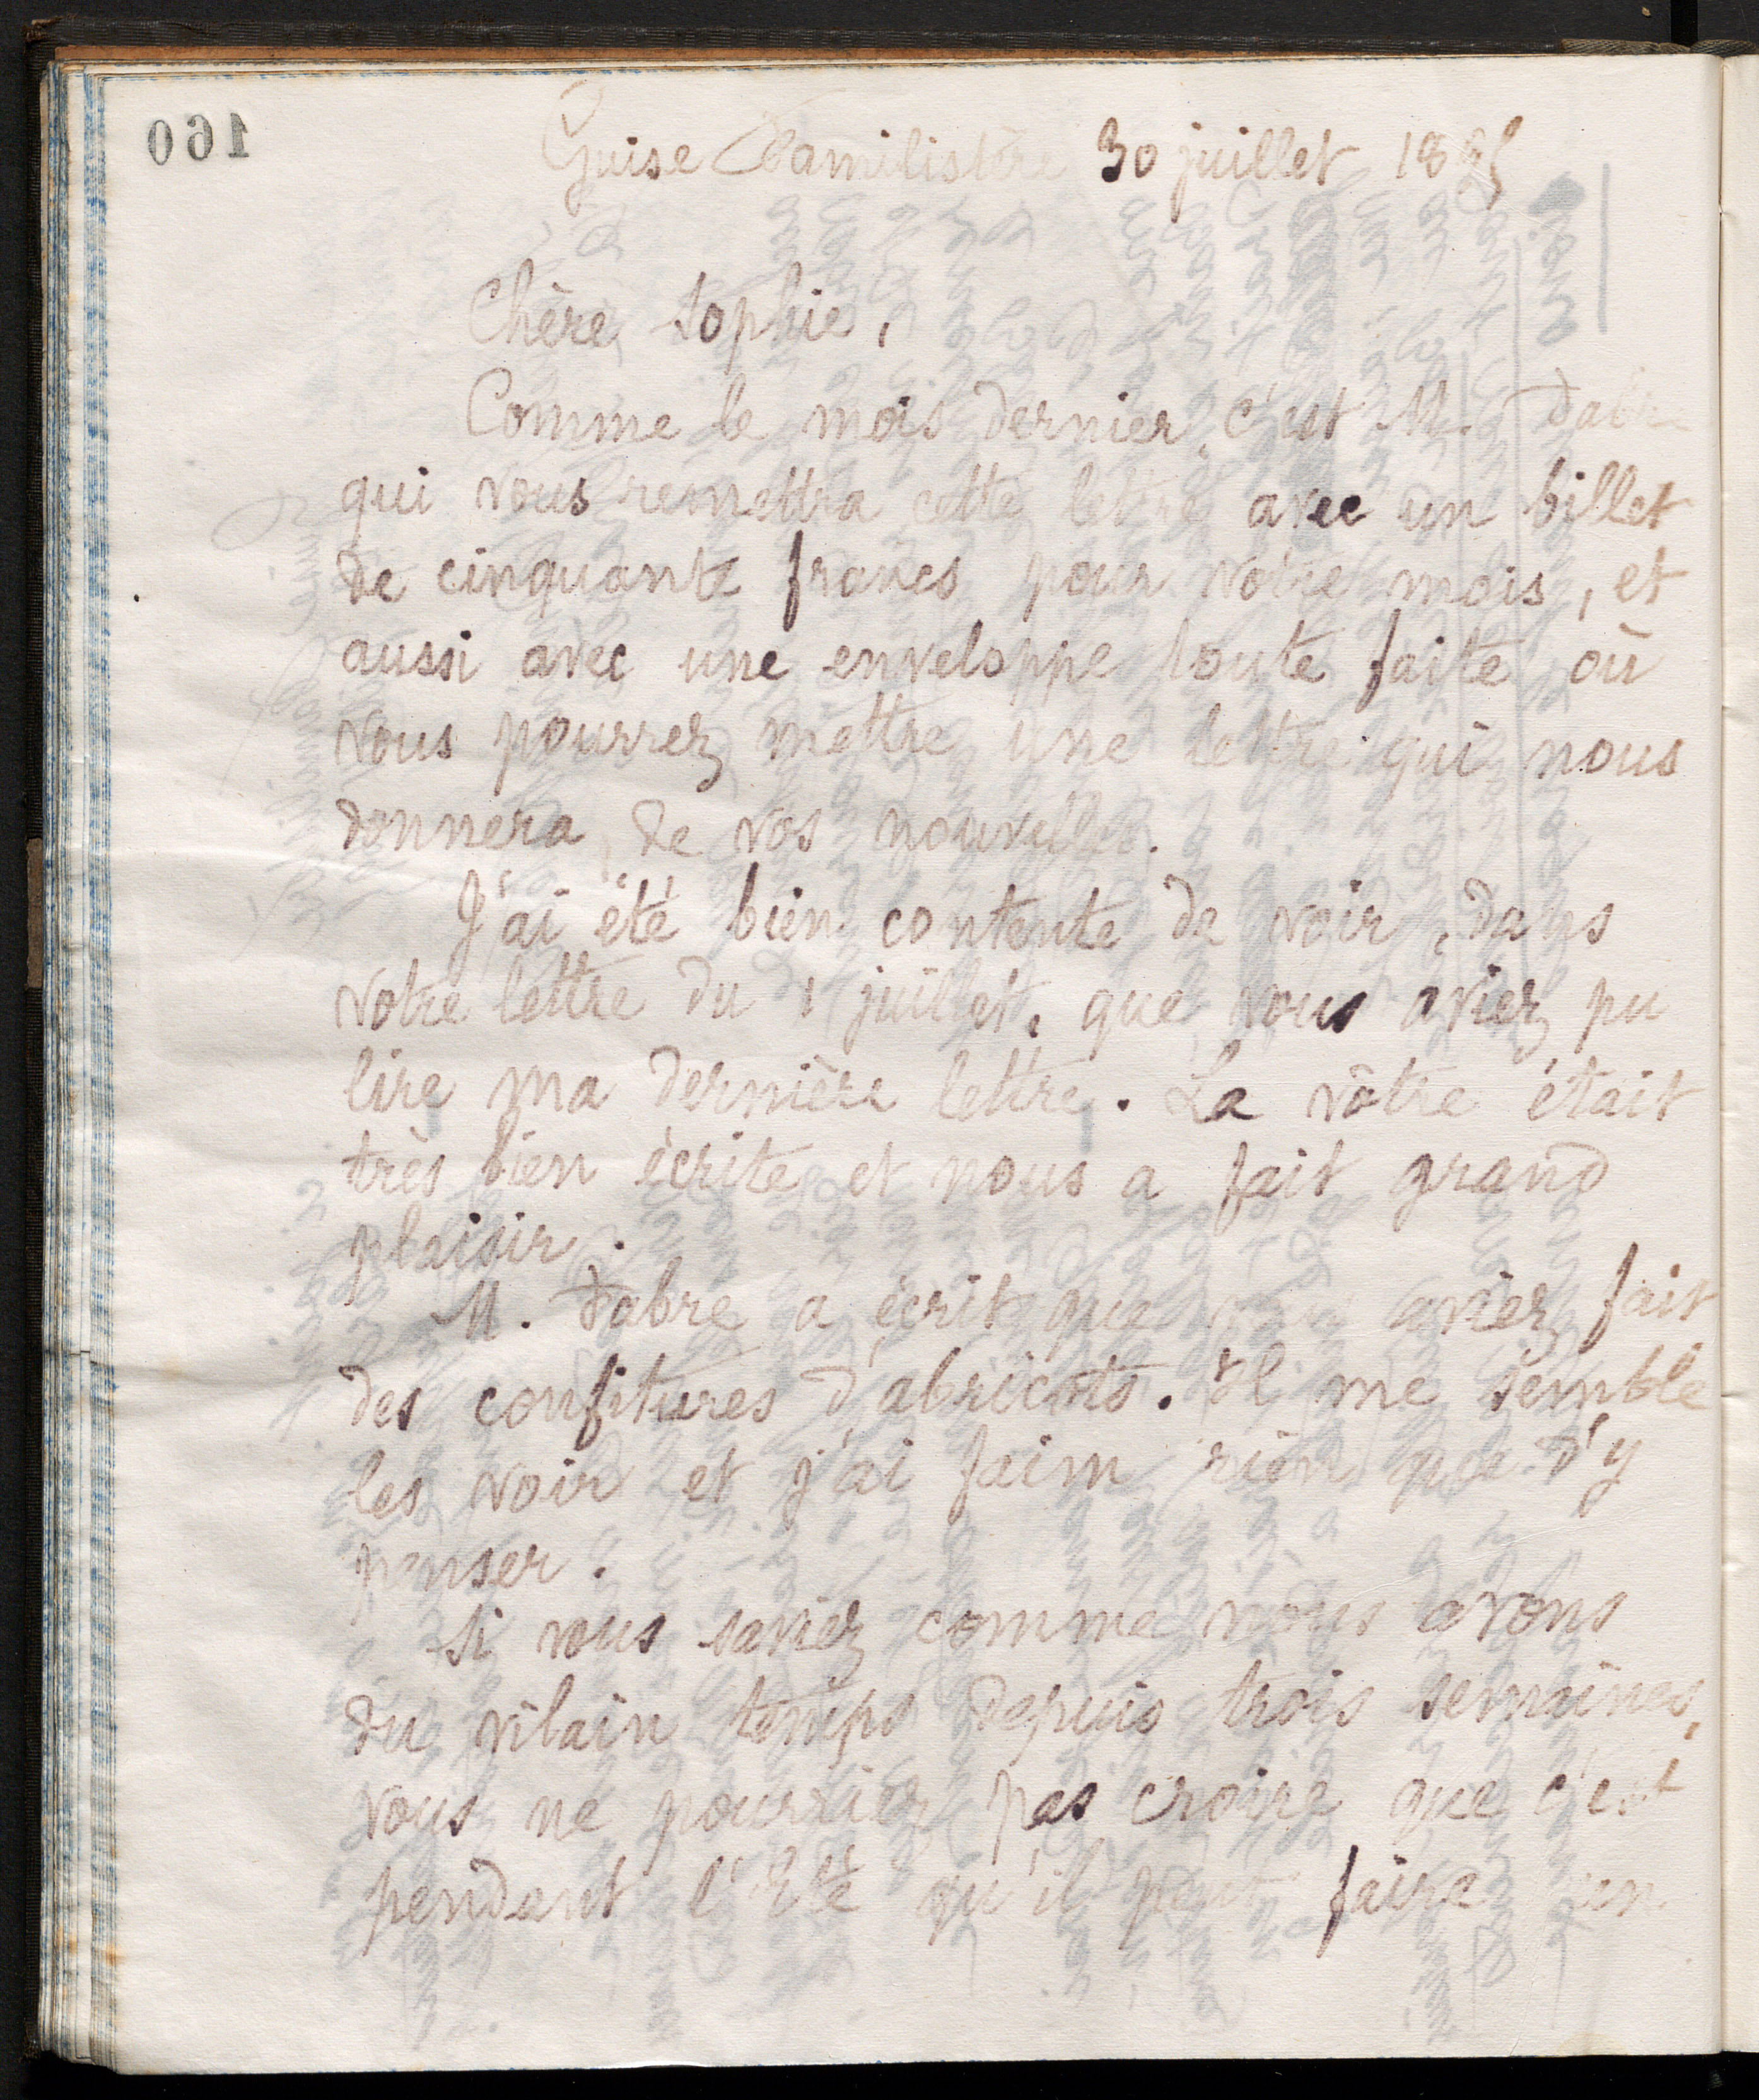 160
Guise Familistère 30 juillet 1895
Chère Sophie,
Comme le mois dernier, c'est M. Fabre
qui vous remettra cette lettre avec un billet
de cinquante francs pour votre mois, et
aussi avec une enveloppe toute faite où
vous pourrez mettre une lettre qui nous
donnera de vos nouvelles.
J'ai été bien contente de voir, dans
votre lettre du 1 juillet, que vous aviez pu
lire ma dernière lettre. La vôtre était
très bien écrite et nous a fait grand
plaisir.
M. Fabre a écrit que vous aviez fait
des confitures d'abricots. Il me semble
les voir et j'ai faim rien que d'y
penser.
Si vous saviez comme nous avons
du vilain temps depuis trois semaines,
vous ne pourriez pas croire que c'est
pendant l'été qu'il peut faire un